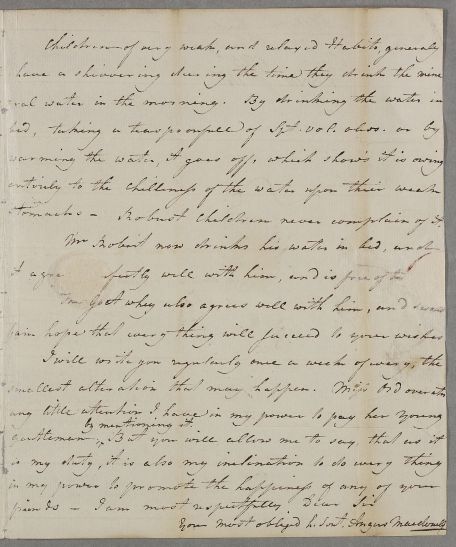 Children of very weak, and relaxed Habits, generaly
have a shivering during the time they drink the mine
ral water in the morning. By drinking the water in
bed, taking a teaspoonfull of Spt. vol. oleos. or by
warming the water, it goes off, which shows it is owing
entirely to the chillness of the water upon their weak
stomachs – Robust Children never complain of it.
Mr Robert now drinks his water in bed, and
it agre fectly well with him, and is free of
The Goat whey also agrees well with him, and
fain hope that every thing will succeed to your wishes
I will write you regularly once a week of every, the
smallest alteration that may happen. Mrs Ord overrates
any little attention I have in my power to pay her young
by mentioning it.
gentlemen, But you will allow me to say that as it
is my duty, it is also my inclination to do every thing
in my power to promote the happiness of any of your
friends – I am most respectfully Dear Sir
Your most obliged h. Servt. Angus Macdonald